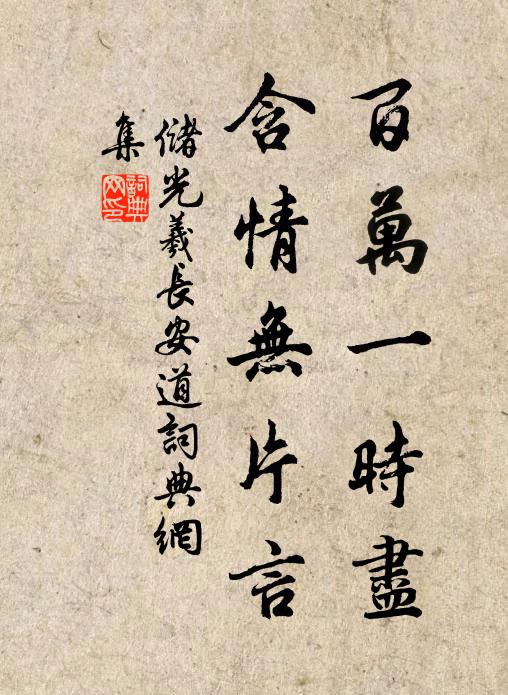 百萬一時盡
含情無片言
儲光羲長安道詞典網
集
詞典
网印